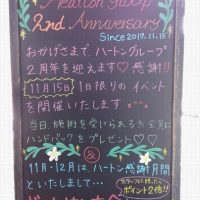 Hearton group
2nd Anniversary
Since 2017.11.15
おかげさまで、ハートングループ
2周年を迎えます♡感謝!!
11月15日 1日限りのイベント
を開催いたします
当日、施術を受けられる方全員に
ハンドパックをプレゼント♡♡
&
11月・12月はハートン感謝月間
といたしまして…
ポイント2倍!!